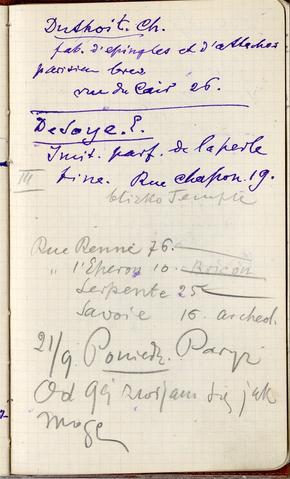 Duthoit. Ch.
fab. d'épingles et d'attaches
parisien brev
rue du Cair 26.
Desoye. E.
Imit. parf. de la perle
III fine. Rue Chapon. 19.
blizko Temple
Rue Renne 76.
" l'Eperon 10.
Serpente 25
Savoie 16. archeol.
21/9. Poniedz. Paryż
Od 9ej zwijam się jak
mogę